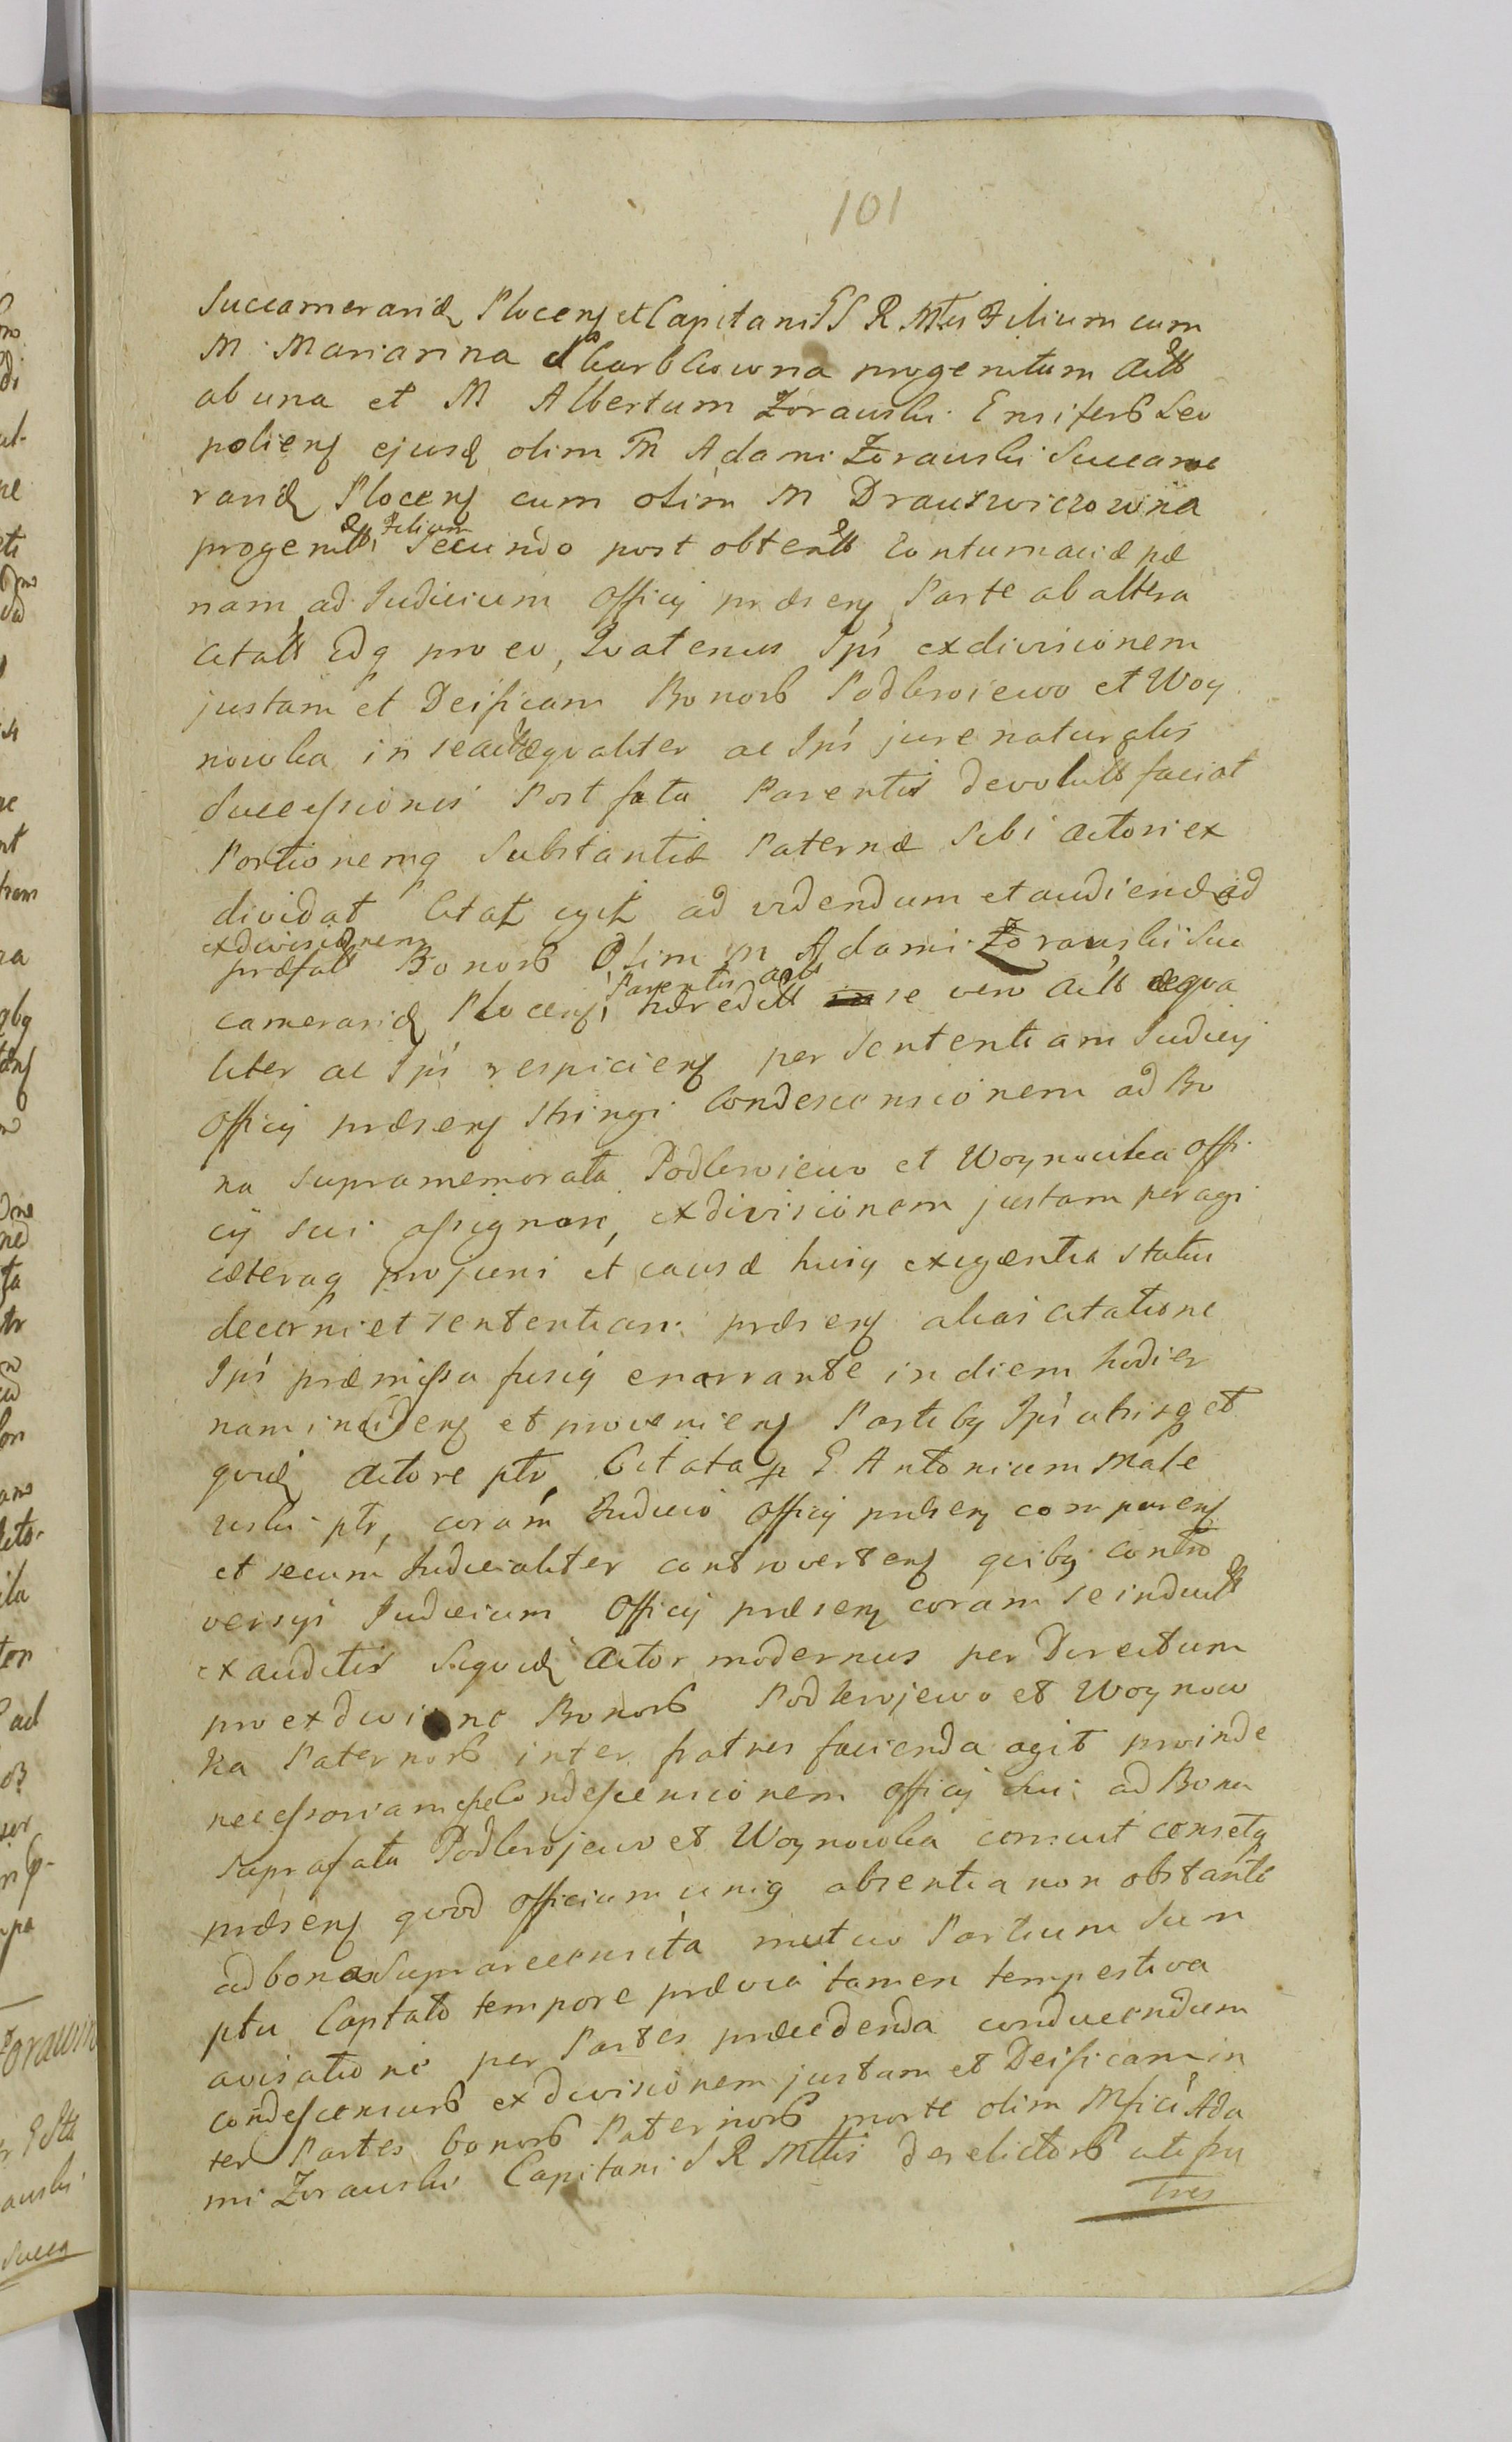 101
Succamerarid Plocens et Capitani S R Mtis Filium cum
M Marianna Skarbkowna progenitum Actt
ab una et M Albertum Zorawski Ensiferb Leo
poliens ejusd olim M Adami Zorawski Succame
rarid Plocens cum olim M Drauswiczowna
progenitt Filium Secundo post obtentt Contumaciæ pæ
nam ad Judicium Officij præsens Parte ab altera
Citatt Idq pro eo, Quatenus Ipi exdivisionem
justam et Deificam Bonorb Podlewiewo et Woy
nowka in se actt æqualiter ac Ipi jure naturalis
Successionis Post fata Parentis devolutt faciat
Portionemq Substantiæ Paternæ Sibi Actori ex
dividat Citat ad videndum et audiend ad
exdivisionem
præfatt Bonorb Olim M Adami Zorawski Suc
camerarid Plocens, Parentis hæreditt se vero Actt æqua
liter ac Ipi respiciens per Sententiam Judicij
Officij præsens stringi Condescensionem ad Bo
na supramemorata Podlewiewo et Woynowka offi
cij sui assignari, exdivisionem justam peragi
cæteraq projuni et causæ huiq exigentia status
decerni et sententiari præsens alias citatione
Ipi præmissa fusiq enarrante in diem hodier
nam incidens et proveniens Partibq Ipi utrisq et
quid Actore ptr, Citata p G Antonium Male
ptr, coram Judicio Officij præsens comparens
et secum Judicialiter controvertens quibq contro
versijs Judicium Officij præsens coram se inductt
exauditis Siquid Actor modernus per Directum
pro exdivisione Bonorb Podlewojewo et Woynow
ka Paternorb inter fratres facienda agit proinde
necessariam esse Condescensionem officij Sui ad Bona
suprafata Podlewojewo et Woynowka censuit censetq
præsens quod officium uniq absentia non obstante
ad bona Suprarecensita mutuo Partium Sum
ptu Captato tempore prævia tamen tempestiva
avisatione per Partes præcedenda conducendum
condescensurb exdivisionem justam et Deificam in
ter Partes bonorb Paternorb morte olim Mfici Ada
mi Zorawski Capitani S R Mttis derelictorb uti fra
Tres